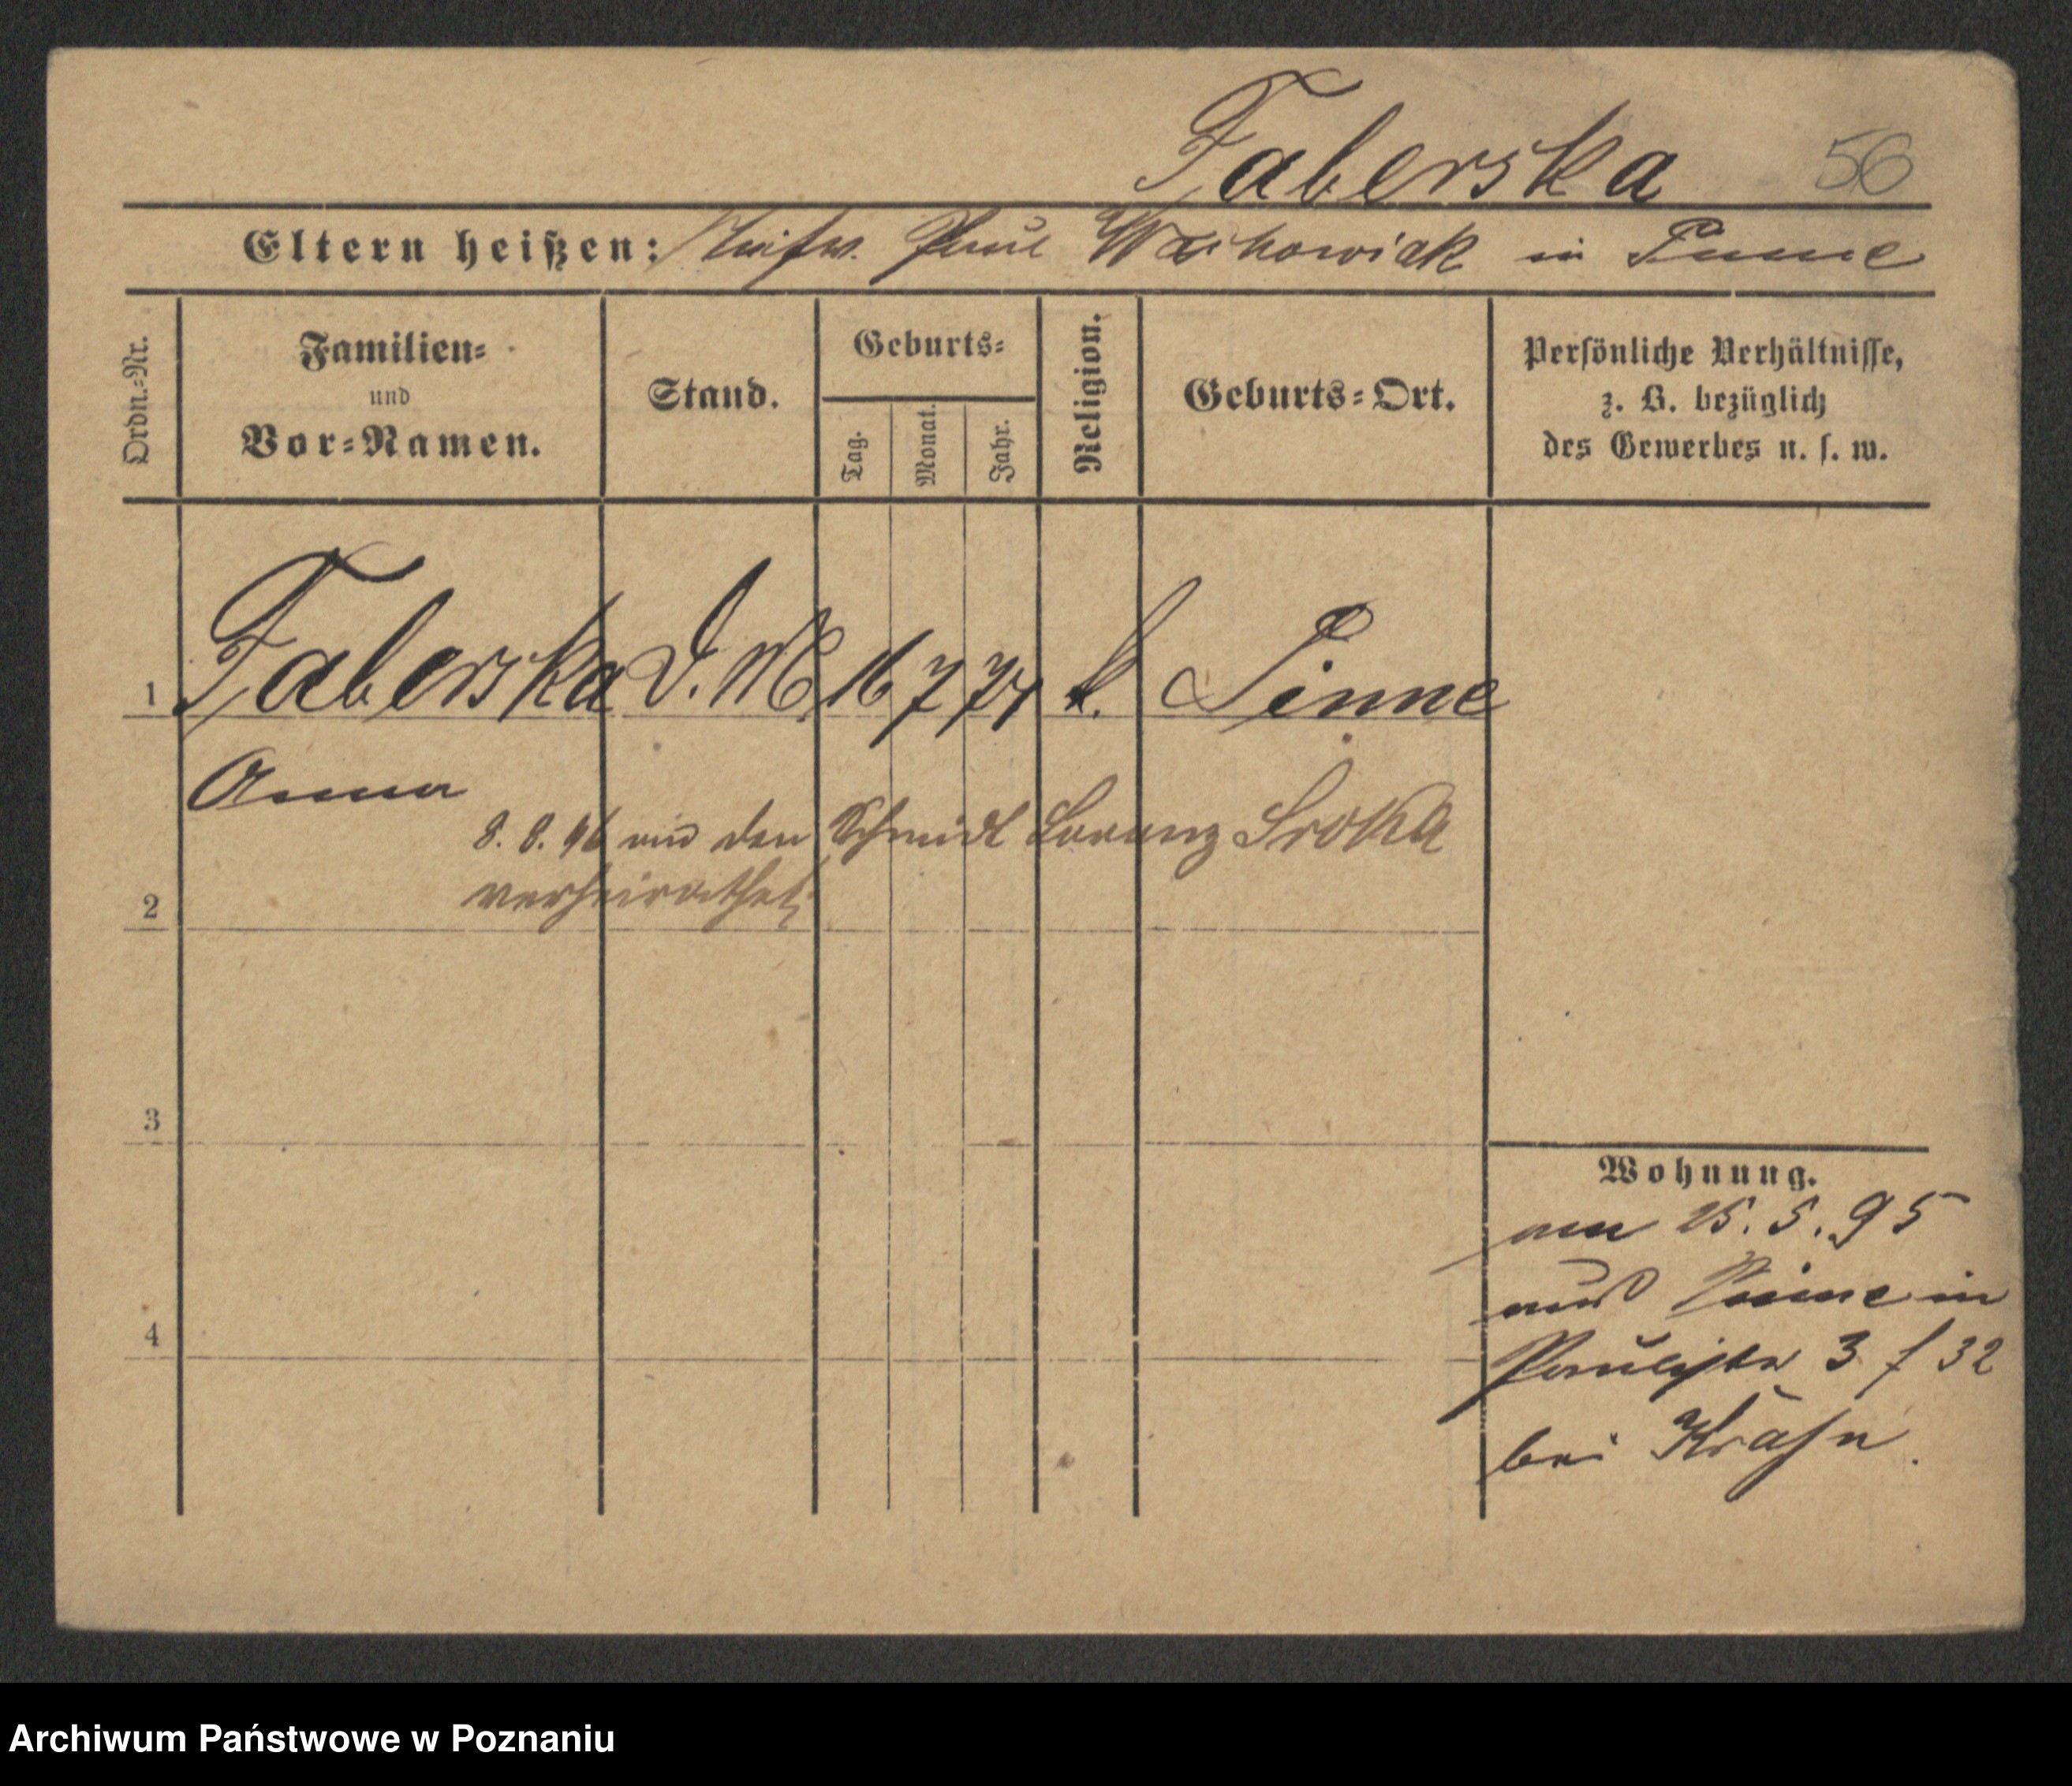 Faberska 56
Eltern heißen: Paul Wachowiak in Pinne
Ordn.-Nr.
Familien-
und
Vor-Namen.
Stand.
Geburts-
Tag.
Monat.
Jahr.
Religion.
Geburts-Ort.
Persönliche Verhältnisse,
z. B. bezüglich
des Gewerbes u. s. w.
1 Faberska D. M 16 7 74 k. Pinne
Anna
8. 8. 96 mit den Schmidt Lorenz Sroka
2 verheirathet
3
4
Wohnung.
am 15. 5. 95
aus Pinne in
Paulistr 3 f 32
bei
Archiwum Państwowe w Poznaniu